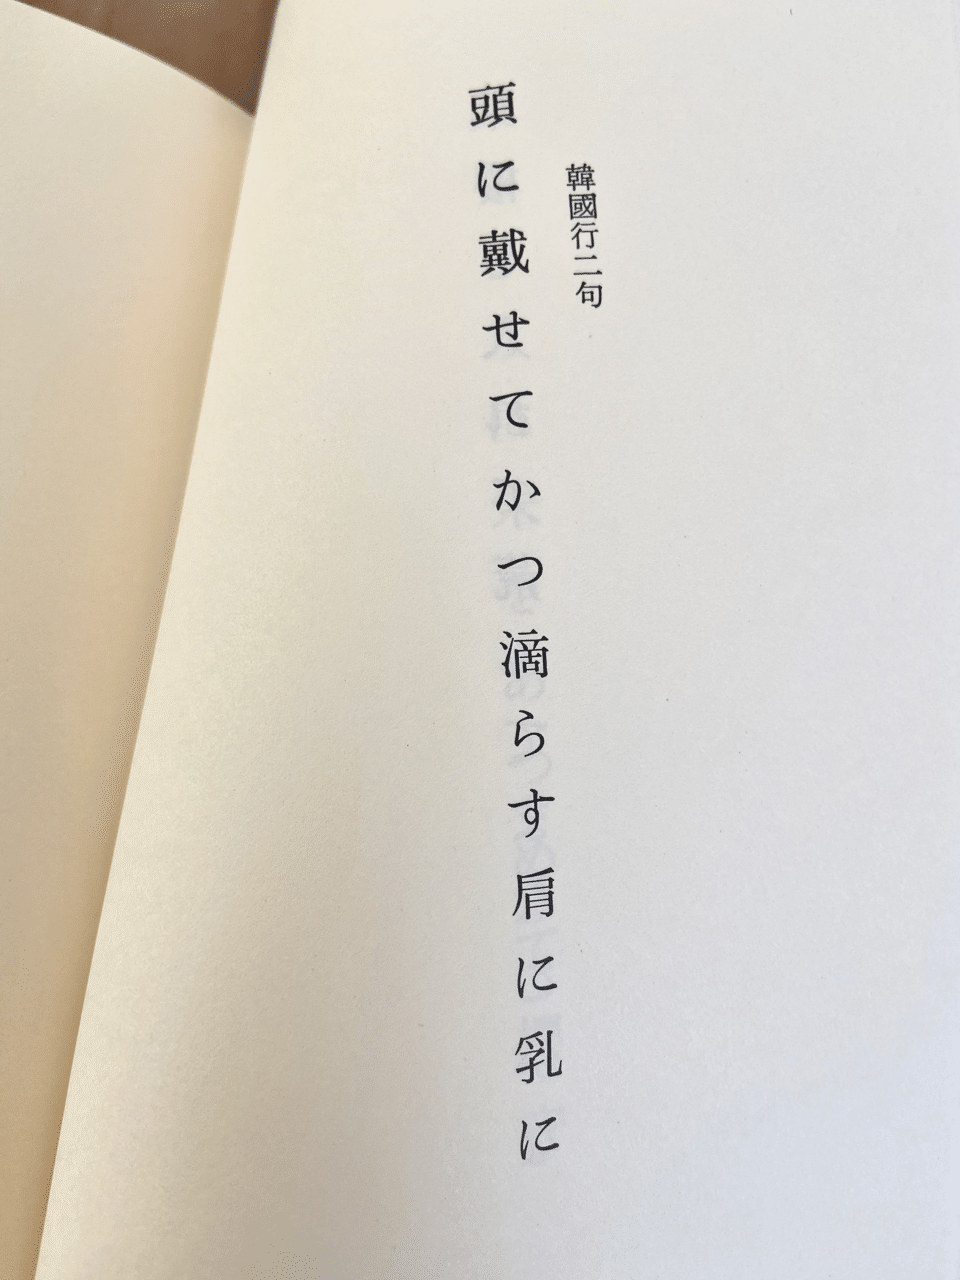 韓國行二句
頭に戴せてかつ滴らす肩に乳に